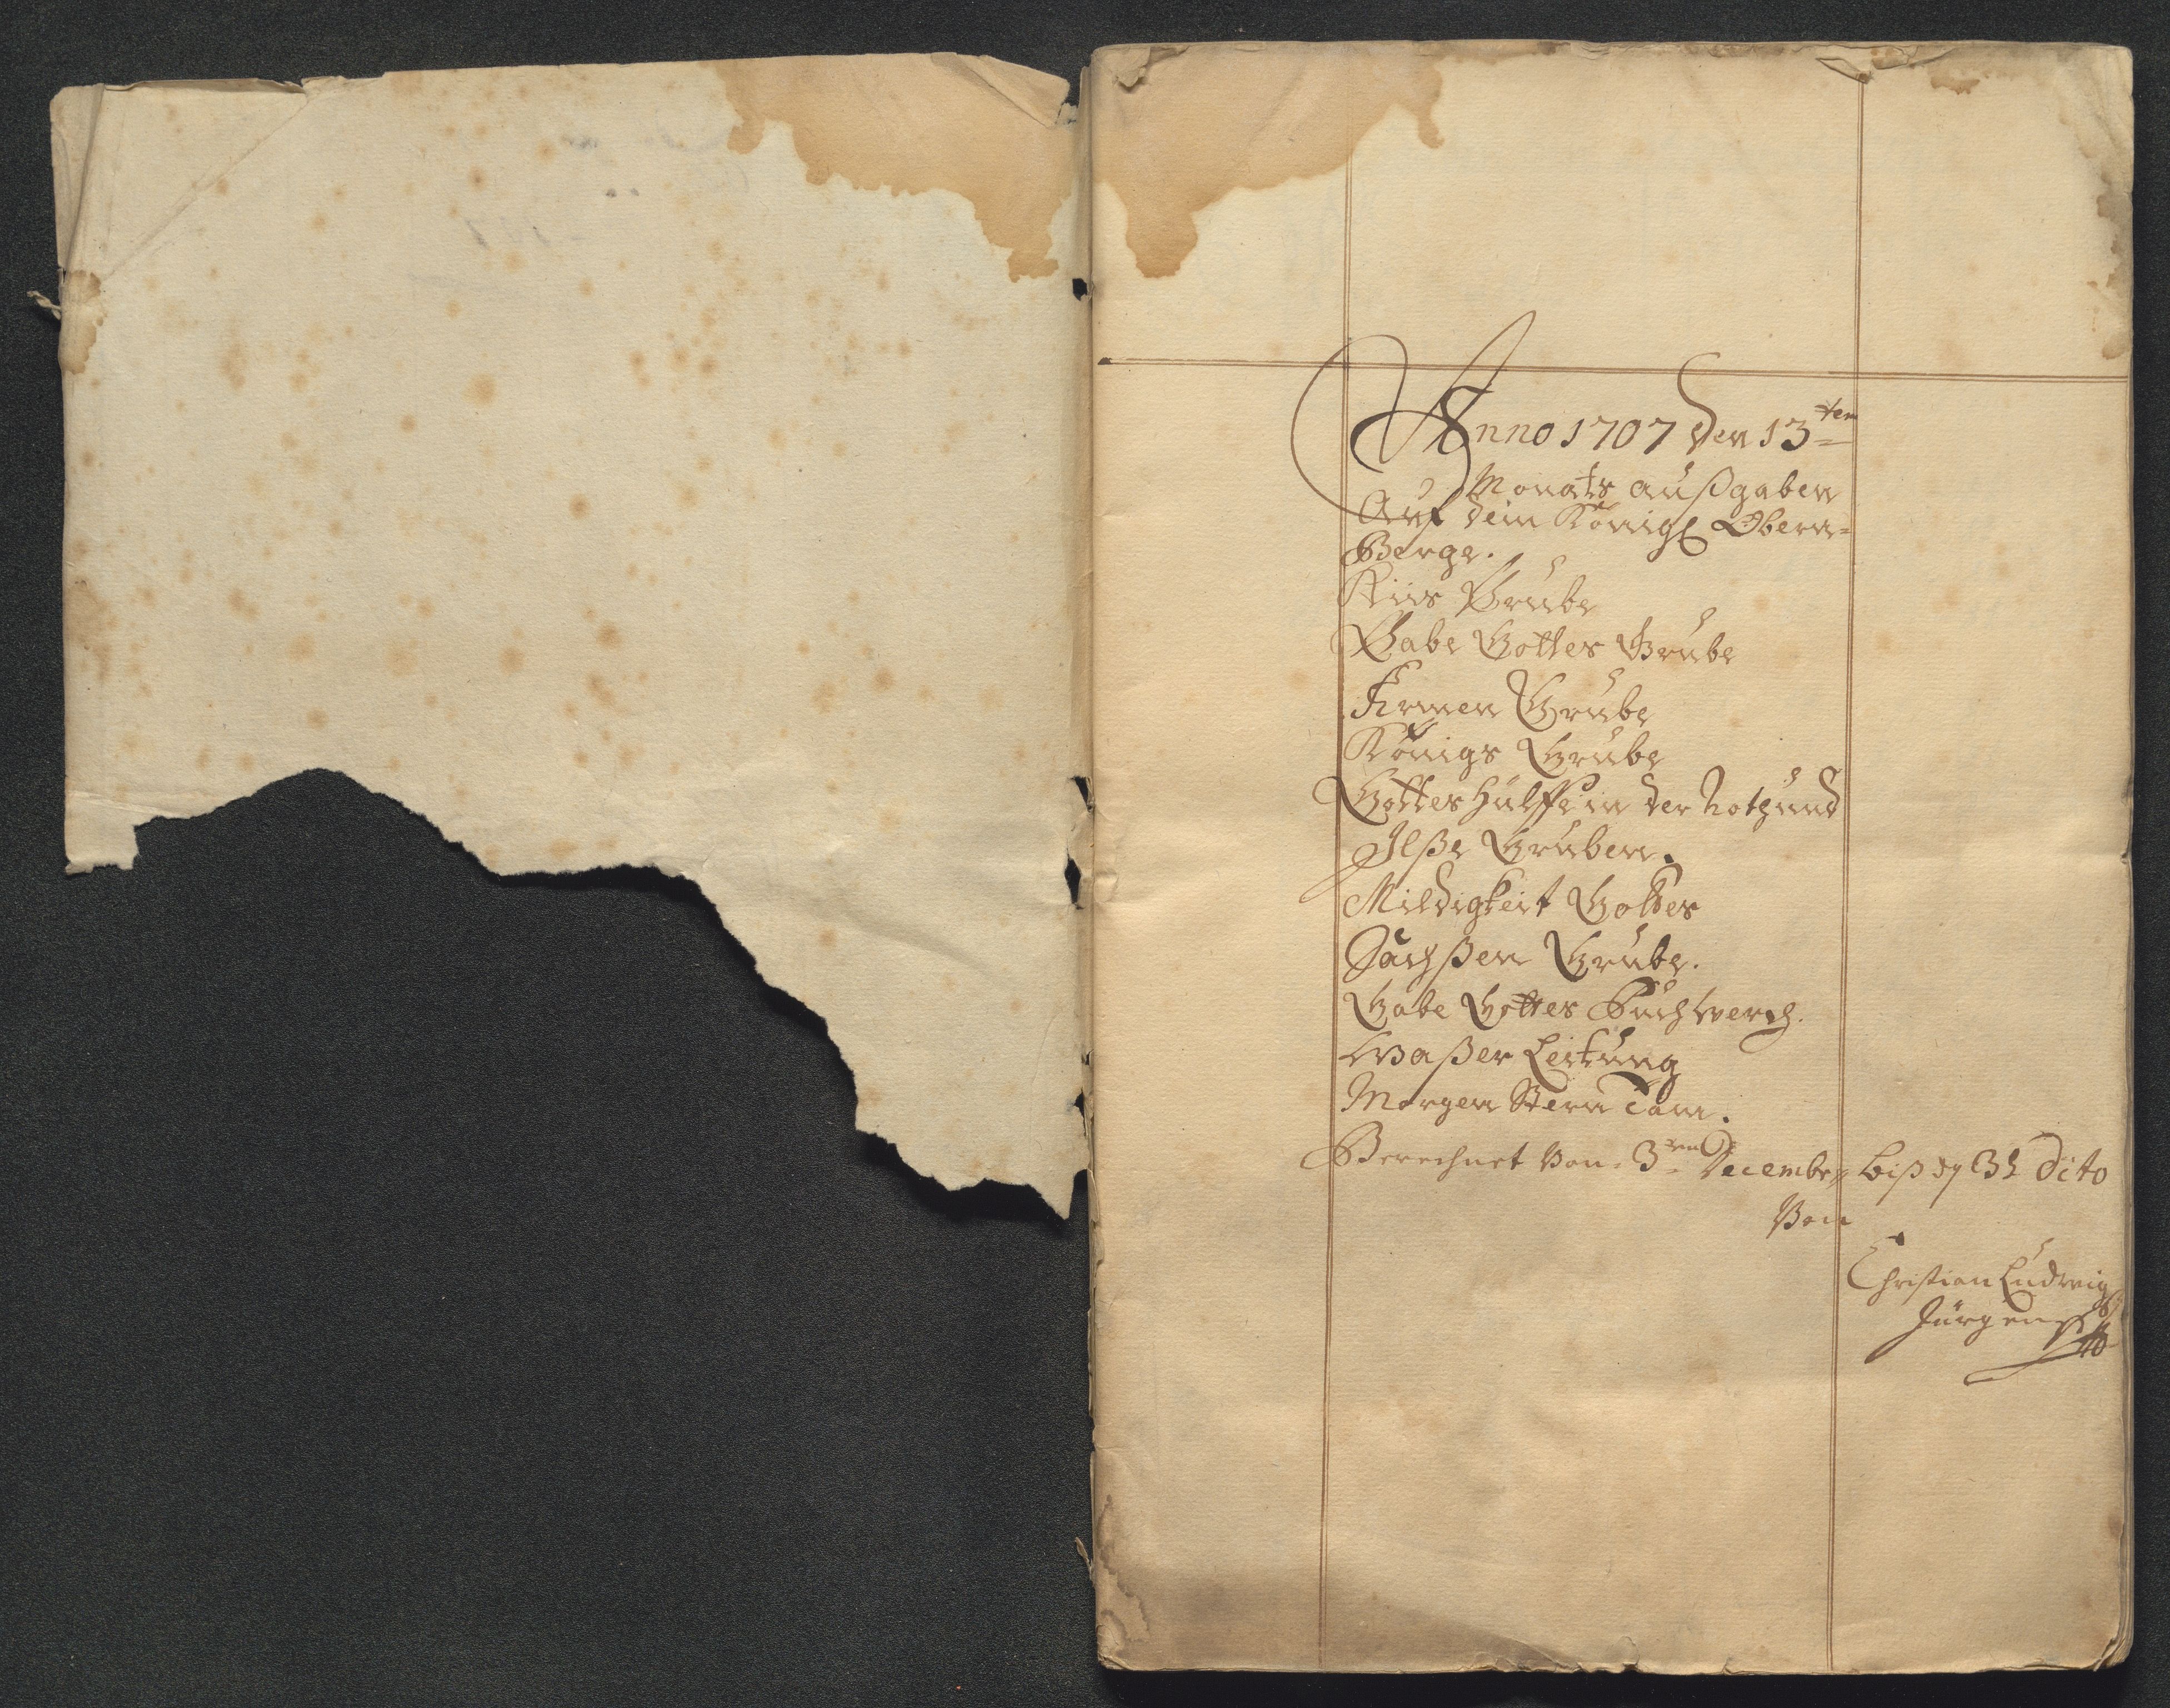 Anno 1707 den 13ten
Monats außgaben
Auf dem Königl Obern-
Berge.
Grube
Gabe Gottes Grube
Armen Grube
Königs Grube
Gottes Hülffe in der Noth und
Ilße Gruben.
Mildigkeit Gottes
Sachßen Grube.
Gabe Gottes Puchwerch.
Waßer Leitung
Morgen Stern Tam.
Berechnet Von 3ten December biß dy 31 dito
Von
Christian Ludwig
Jürgens